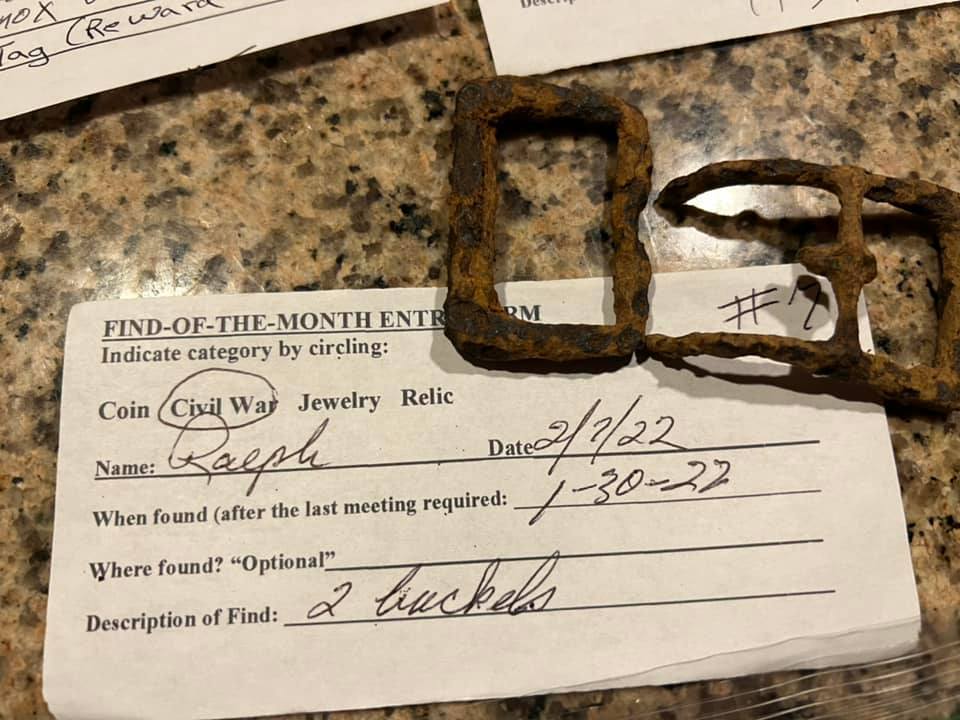 Tag (Reward
Descrip
# 7
FIND-OF-THE-MONTH ENTR RM
Indicate category by circling:
Coin Civil War Jewelry Relic
Name: Ralph Date 2/7/22
When found (after the last meeting required: 1-30-22
Where found? "Optional"
Description of Find: 2 buckels